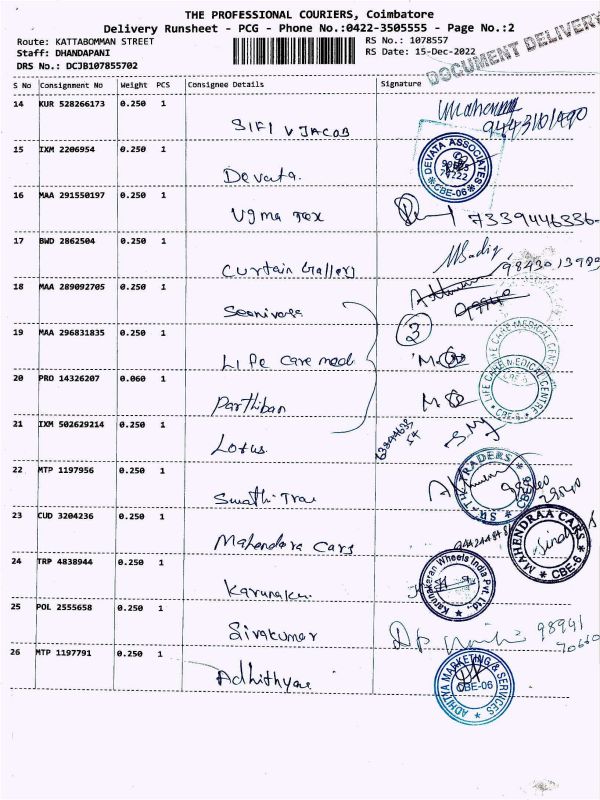 THE PROFESSIONAL COURIERS, Coimbatore
Delivery Runsheet - PCG - Phone No.:0422-3505555 - Page No.:2
Route: KATTABOMMAN STREET
RS No.: 1078557
Staff: DHANDAPANI
RS Date: 15-Dec-2022
DRS No.: DCJB107855702
DOCUMENT DELIVERY
S No Consignment No Weight PCS Consignee Details Signature
14 KUR 528266173 0.250 1
SIFI V JACOB
15 IXM 2206954 0.250 1
Devata.
DEVATA ASSOCIATES
* CBE-06 *
16 MAA 291550197 0.250 1
Vgma Tex
7339446336
17 BWD 2862504 0.250 1
Curtain Gallery
18 MAA 289092705 0.250 1
Seenivasa
19 MAA 296831835 0.250 1
3
Life care medi
LIFE CARE MEDICAL CENTRE
20 PRO 14326207 0.060 1
Parthiban
LIFE CARE MEDICAL CENTRE
* CBE-6 *
21 IXM 502629214 0.250 1
Lotus.
22 MTP 1197956 0.250 1
Swathi Tra
TRADERS
CBE-6
23 CUD 3204236 0.250 1
Mahendara Cars
MAHENDRAA CARS
* CBE-6 *
24 TRP 4838944 0.250 1
Karunaka.
Karunakaran Wheels India Pvt. Ltd.,
25 POL 2555658 0.250 1
Sivakumar
98941
26 MTP 1197791 0.250 1
Adhithya
ADHITNA MARKETING & SERVICES
CBE-06